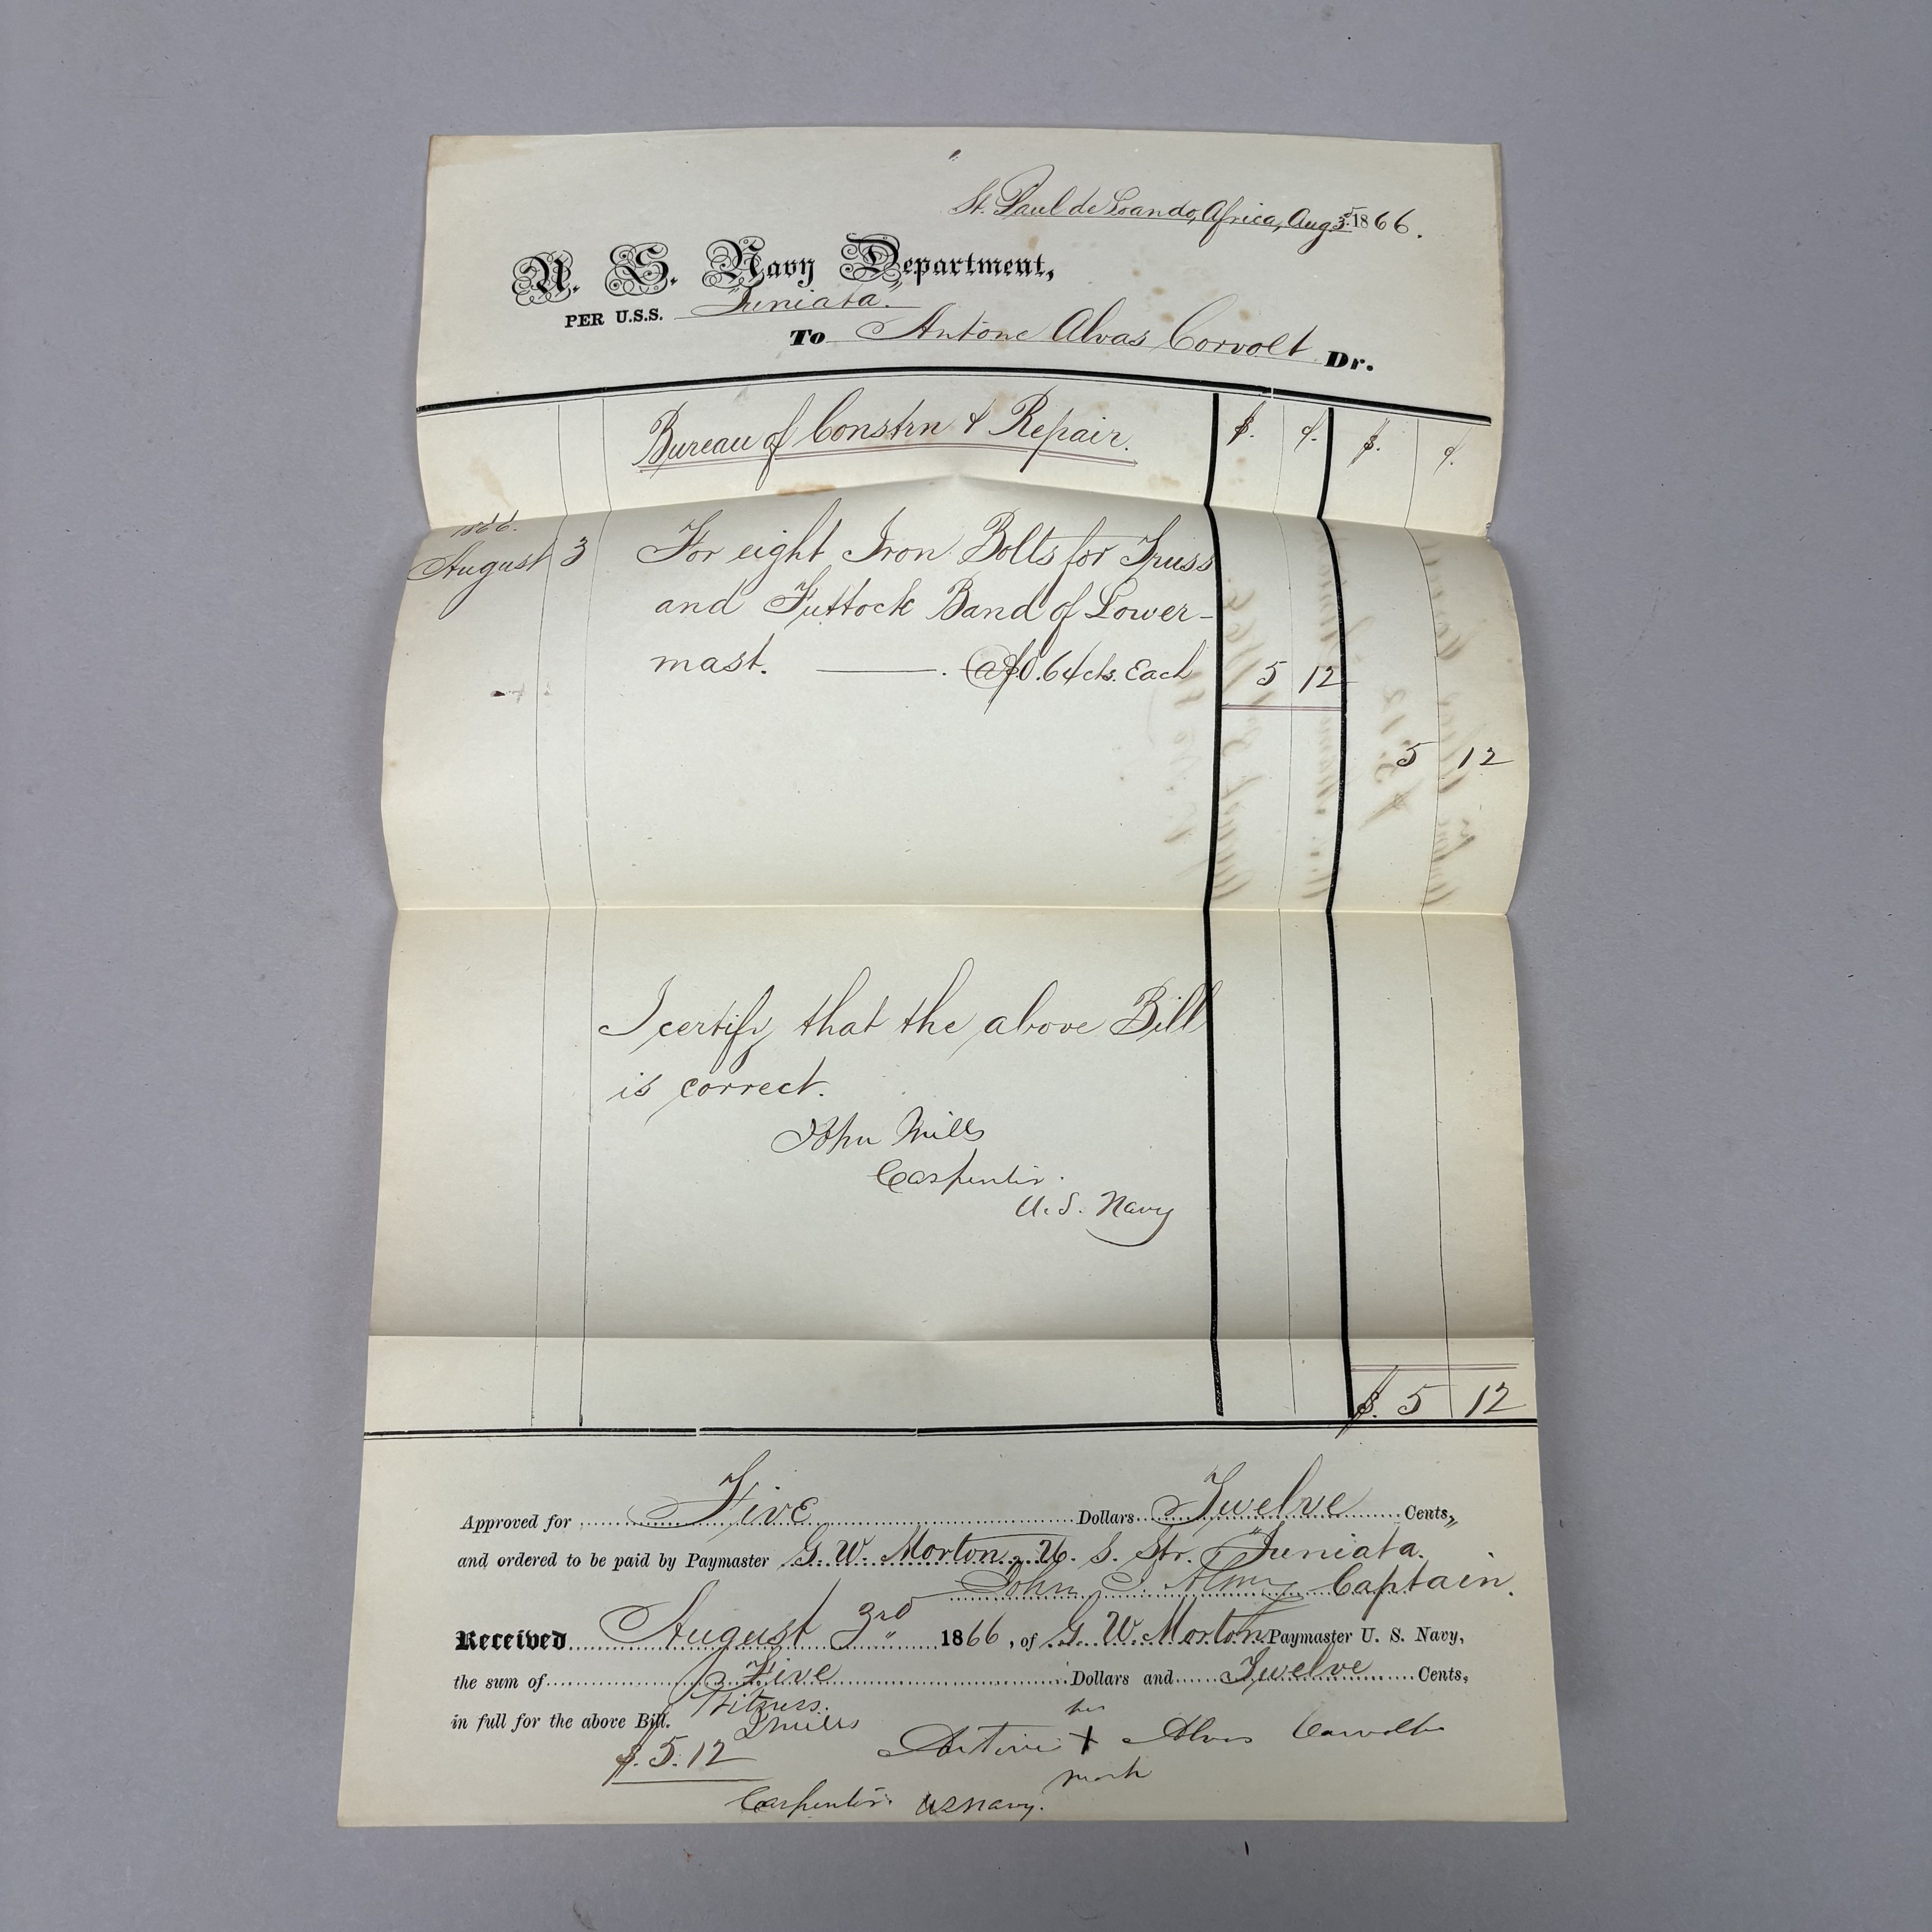 St. Paul de Loando, Africa, Aug 3. 1866.
U. S. Navy Department,
PER U.S.S. Juniata.
To Antone Alvas Corvolt Dr.
Bureau of Constrn & Repair. $. ¢. $. ¢.
1866.
August 3 For eight Iron Bolts for Truss
and Futtock Band of Lower-
mast. @ $0.64cts. Each 5 12
5 12
I certify that the above Bill
is correct.
John Mills
Carpenter.
U. S. Navy
$. 5 12
Approved for Five Dollars Twelve Cents,
and ordered to be paid by Paymaster G. W. Morton, U. S. Str. Juniata.
John J. Almy Captain.
Received August 3rd 1866, of G. W. Morton Paymaster U. S. Navy,
the sum of Five Dollars and Twelve Cents,
in full for the above Bill. Witness.
J Mills
his
$. 5.12 Antone + Alvas Corvolt
mark
Carpenter. U S Navy.